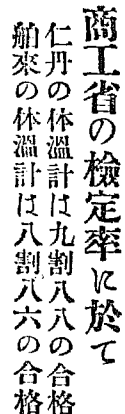 商工省の檢定率に於て
仁丹の体溫計は九割八八の合格
舶來の体溫計は八割八六の合格